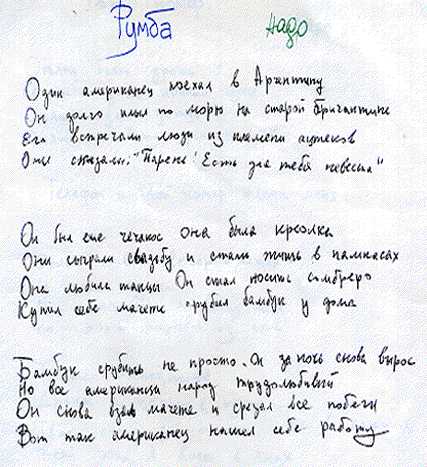 Румба Надо
Один американец поехал в Аргентину
Он долго плыл по морю на старой бригантине
Его встречали люди из племени ацтеков
Они сказали: "Парень! Есть для тебя невеста"
Он был еще чечакос она была креолка
Они сыграли свадьбу и стали жить в пампасах
Она любила танцы Он стал носить сомбреро
Купил себе мачете срубил бамбук у дома
Бамбук срубить не просто. Он за ночь снова вырос
Но все американцы народ трудолюбивый
Он снова взял мачете и срезал все побеги
Вот так американец нашел себе работу